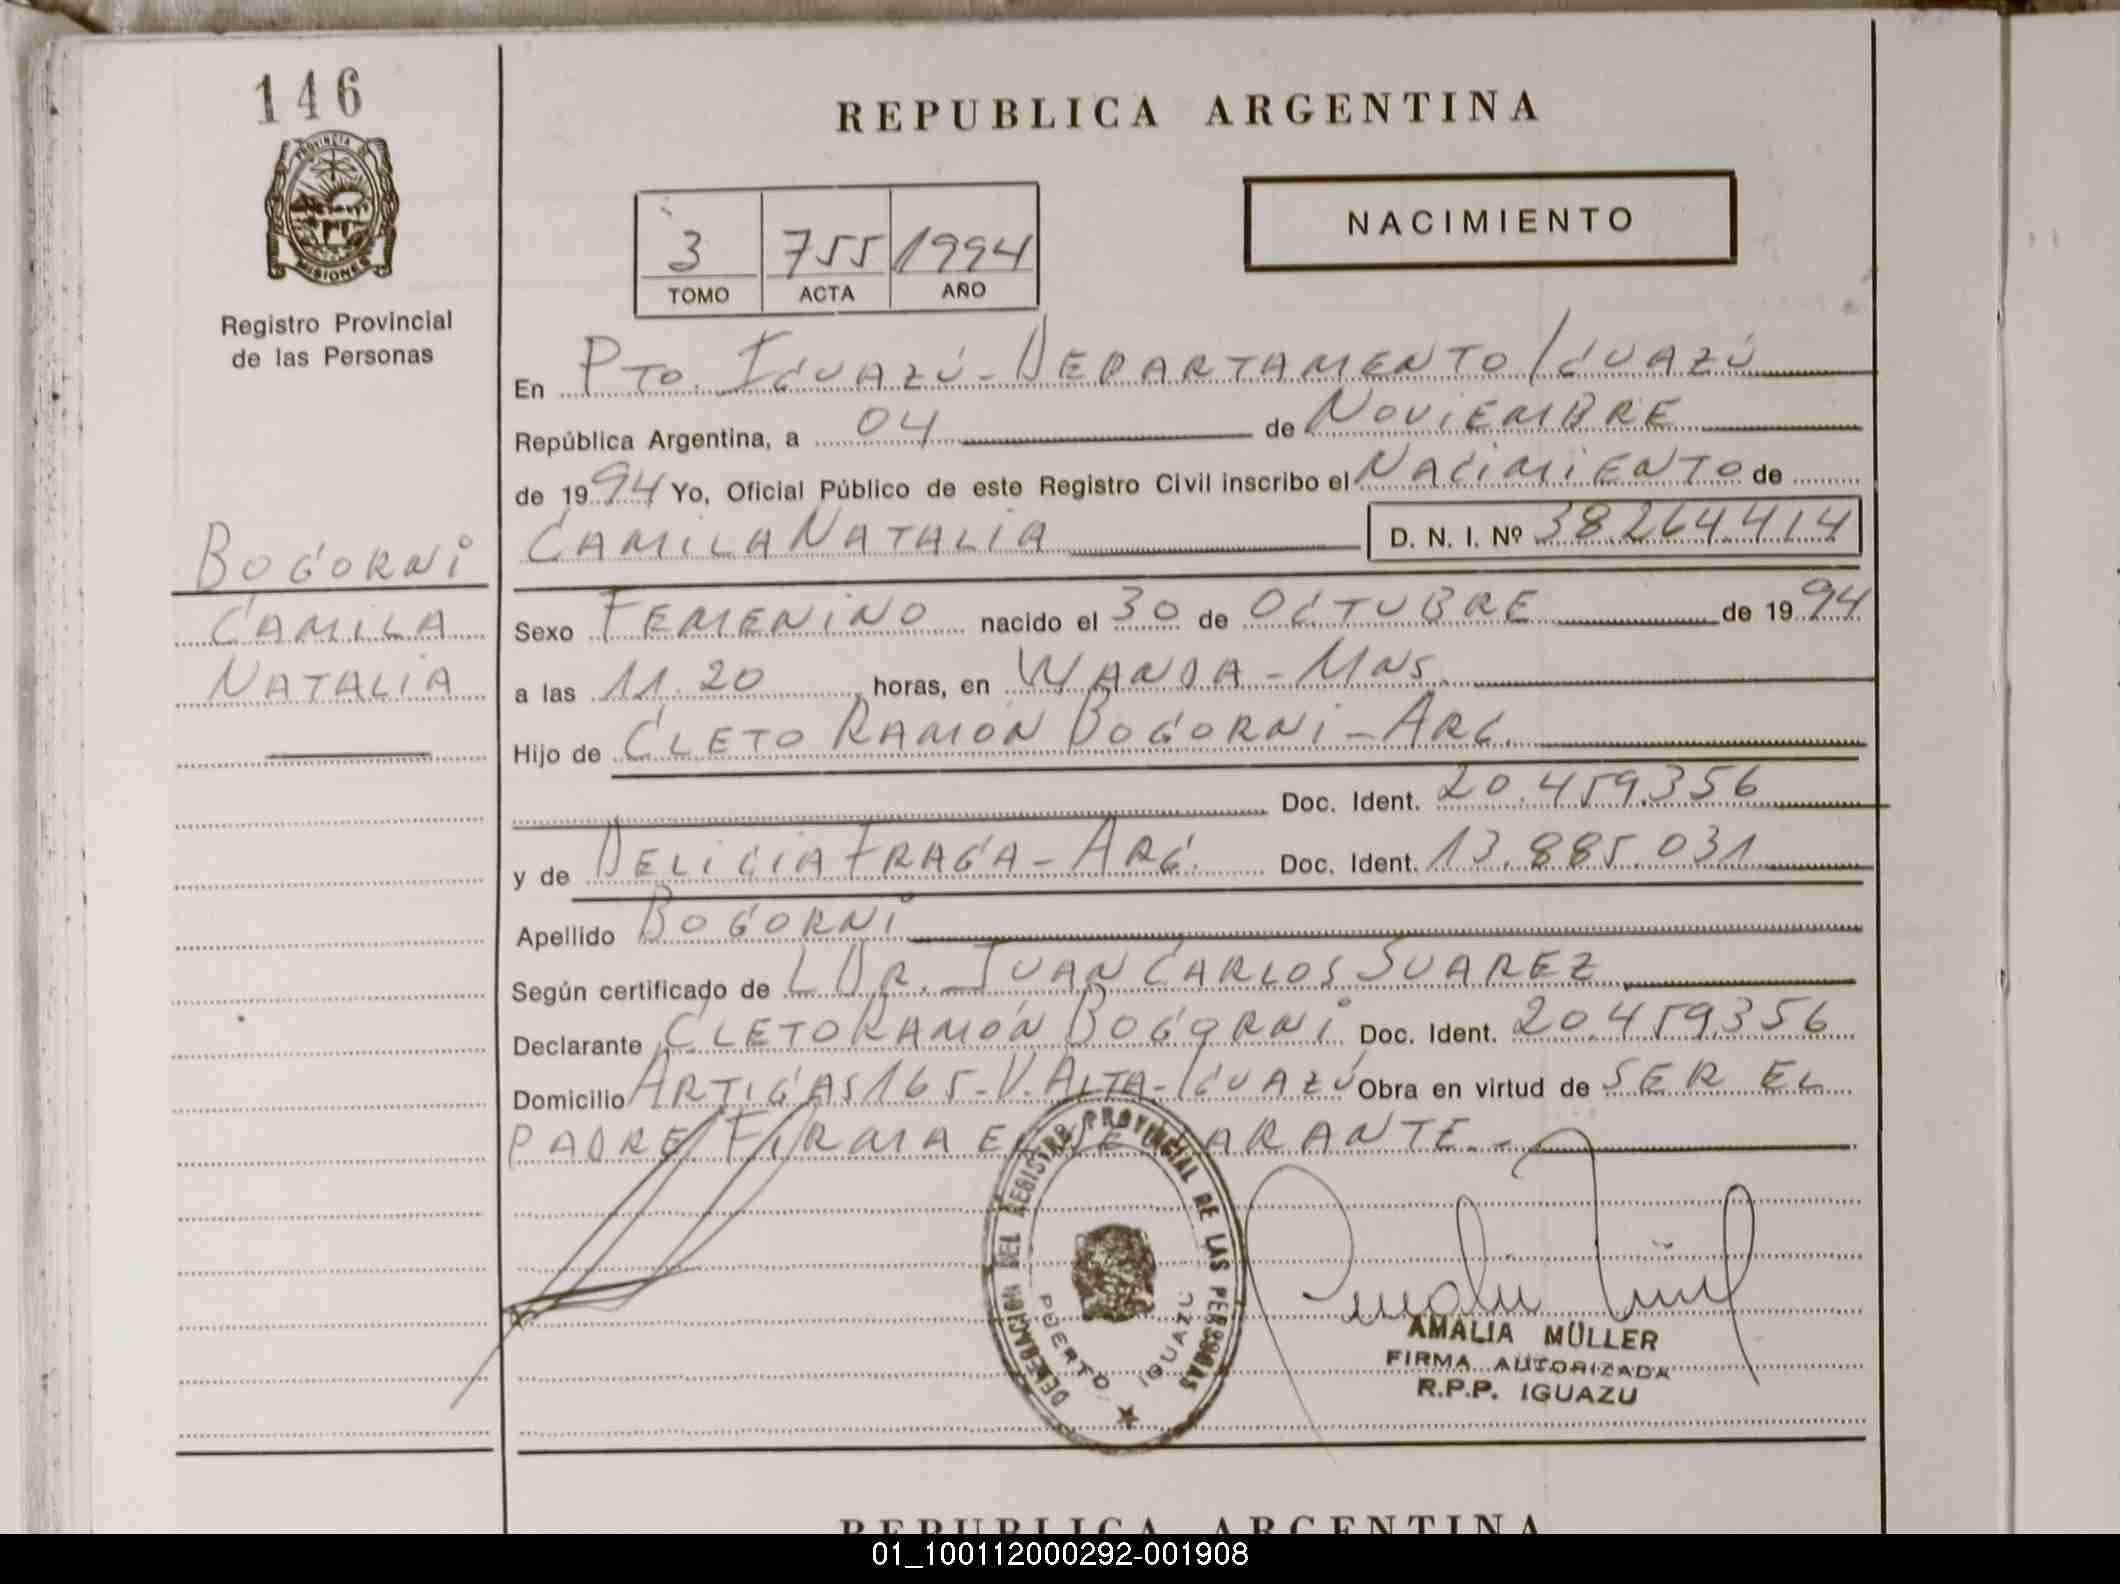 146
PROVINCIA DE
MISIONES
Registro Provincial
de las Personas
REPUBLICA ARGENTINA
NACIMIENTO
3 755 1994
TOMO ACTA AÑO
En PTO. IGUAZÚ - DEPARTAMENTO IGUAZÚ
República Argentina, a 04 de NOVIEMBRE
de 1994 Yo, Oficial Público de este Registro Civil inscribo el NACIMIENTO de
CAMILA NATALIA D. N. I. Nº 38.264.414
BOGORNI
CAMILA
NATALIA
Sexo FEMENINO nacido el 30 de OCTUBRE de 1994
a las 11.20 horas, en WANDA - MNS.
Hijo de CLETO RAMÓN BOGORNI - ARG.
Doc. Ident. 20.459.356
y de DELICIA FRAGA - ARG. Doc. Ident. 13.885.031
Apellido BOGORNI
Según certificado de L DR. JUAN CARLOS SUAREZ
Declarante CLETO RAMÓN BOGORNI Doc. Ident. 20.459.356
Domicilio ARTIGAS 165 - V. ALTA - IGUAZÚ Obra en virtud de SER EL
PADRE FIRMA EL DECLARANTE. -
DELEGACION DEL REGISTRO PROVINCIAL DE LAS PERSONAS
PUERTO IGUAZU
AMALIA MÜLLER
FIRMA AUTORIZADA
R.P.P. IGUAZU
REPUBLICA ARGENTINA
01_100112000292-001908